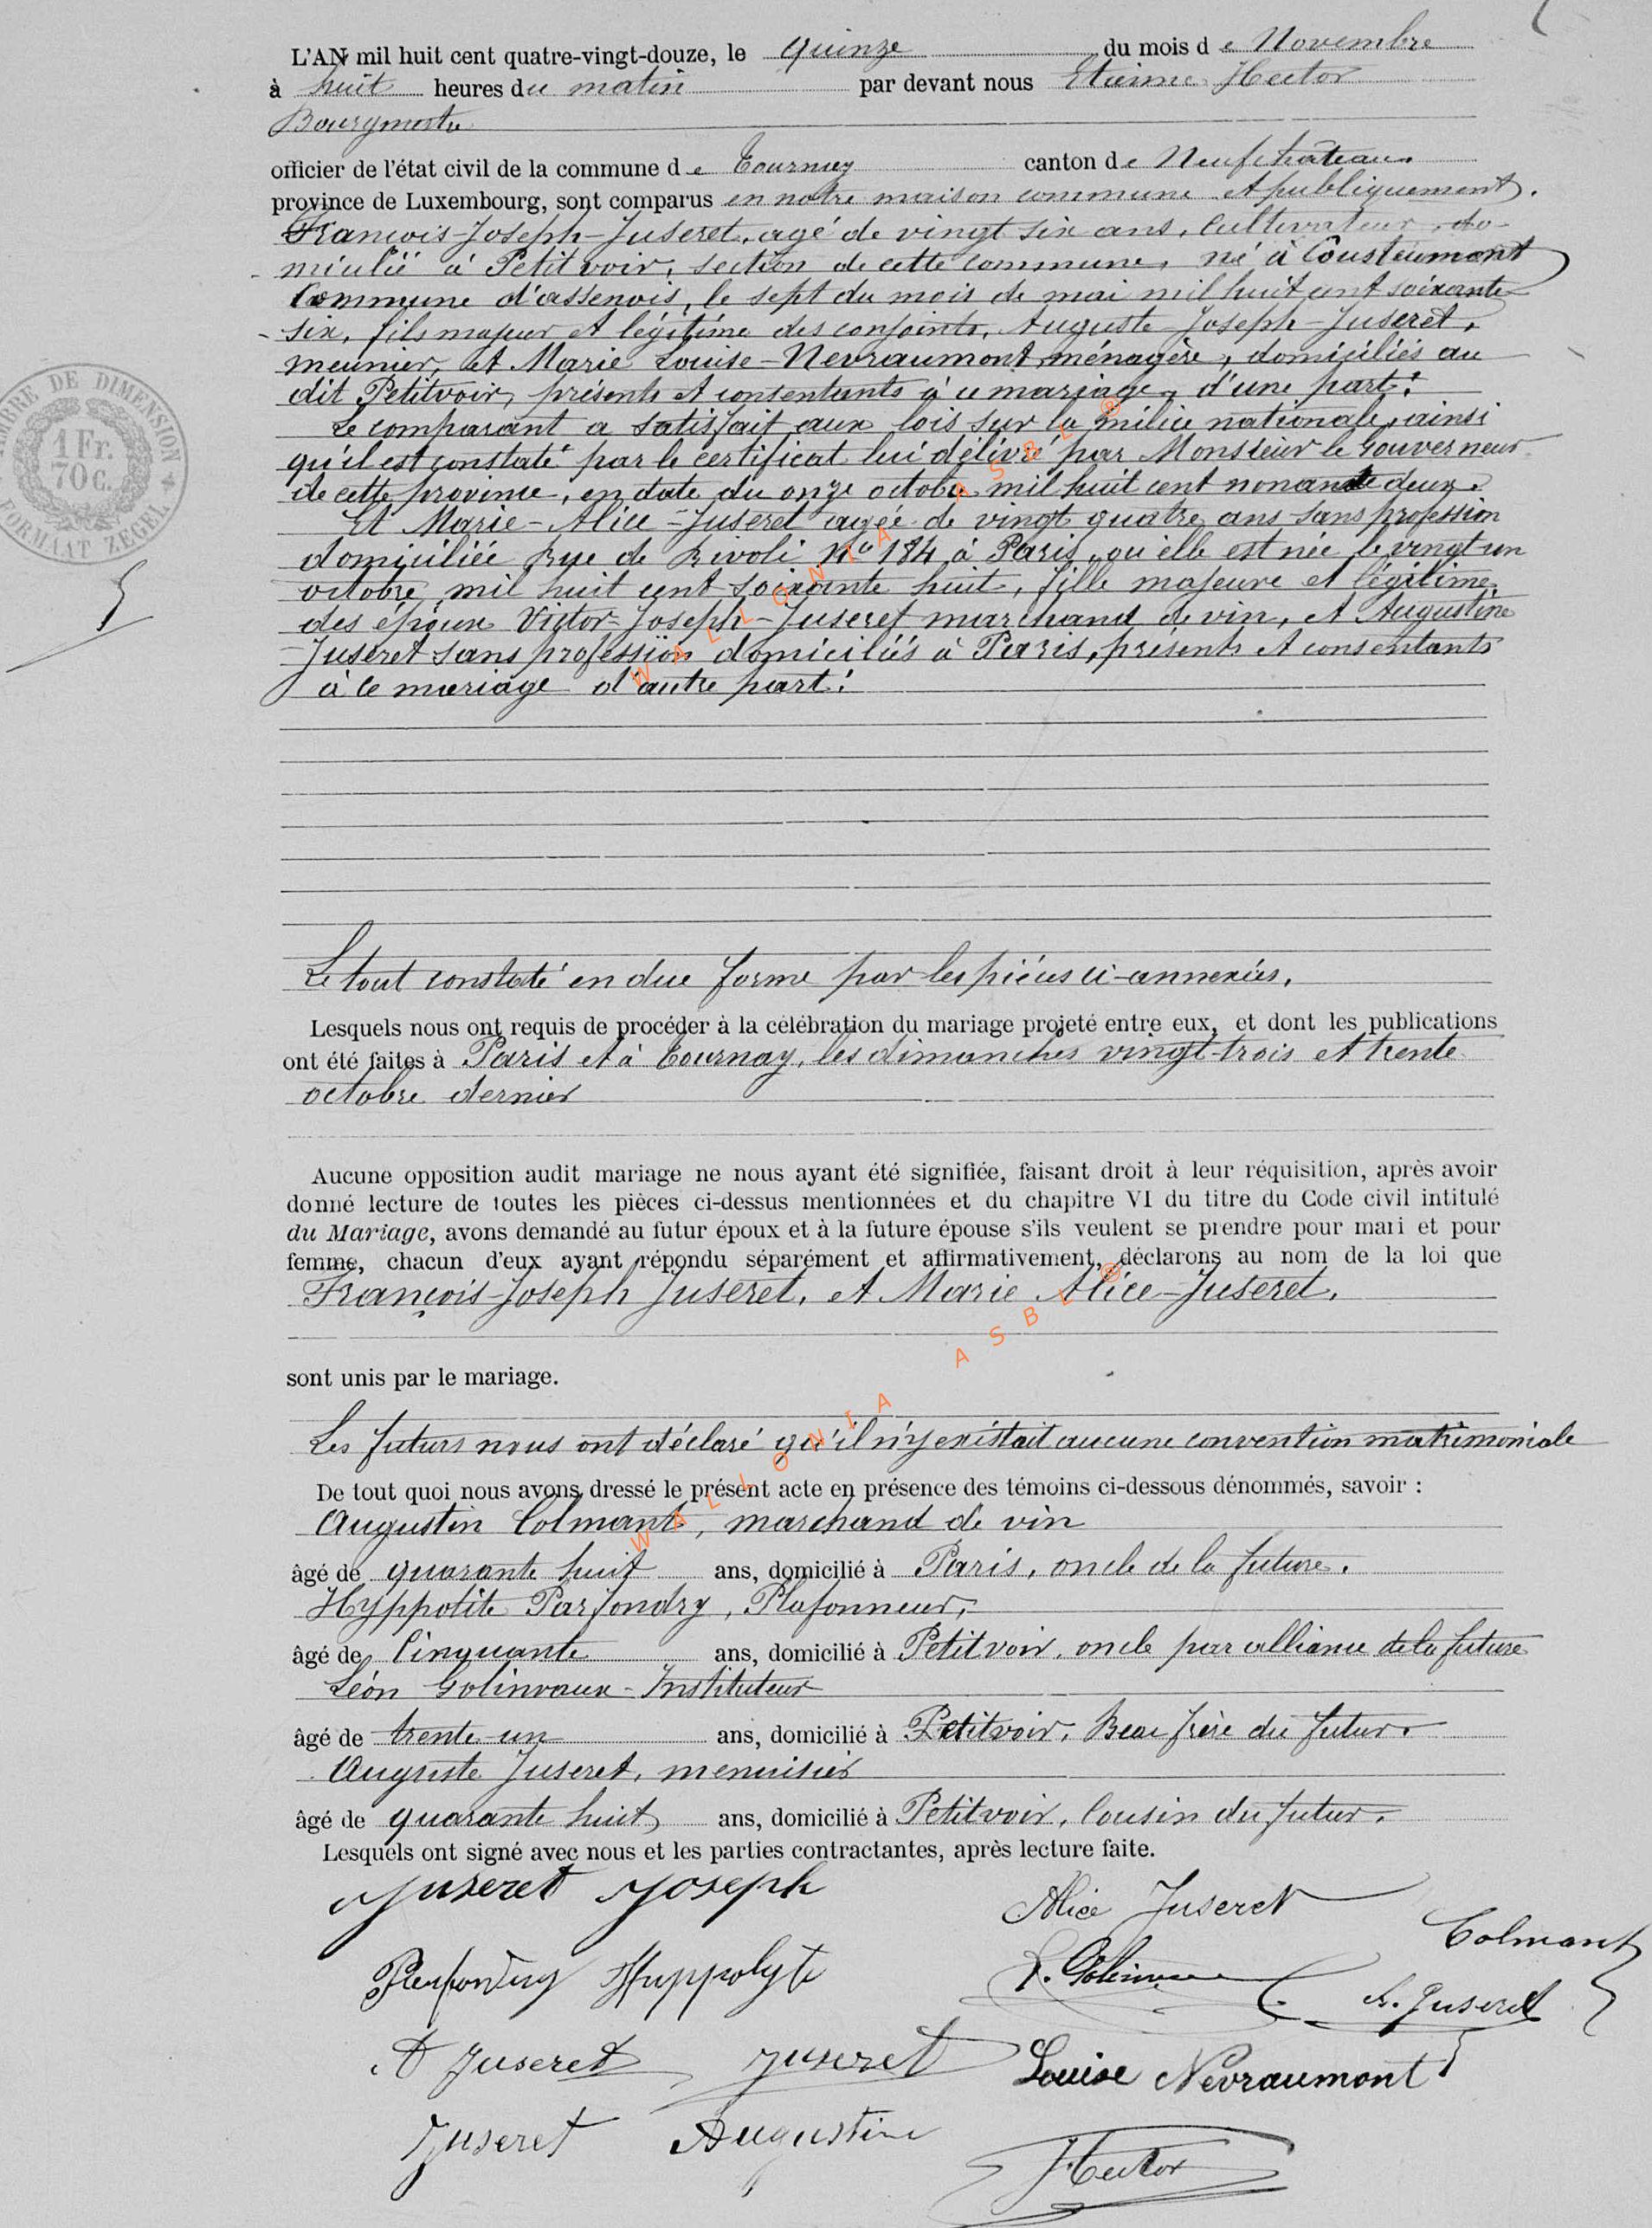 L'AN mil huit cent quatre-vingt-douze, le quinze du mois de Novembre
à huit heures du matin par devant nous Etienne Hector
Bourgmestre
officier de l'état civil de la commune de Tournay canton de Neufchâteau
province de Luxembourg, sont comparus en notre maison commune et publiquement.
François-Joseph-Juseret, agé de vingt six ans, cultivateur, do-
micilié à Petitvoir, section de cette commune, né à Cousteumont
Commune d'assenois, le sept du mois de mai mil huit cent soixante
six, fils majeur et légitime des conjoints, Auguste-Joseph-Juseret,
meunier, et Marie Louise-Nevraumont, ménagère, domiciliés au
dit Petitvoir, présents et consentants à ce mariage, d'une part:
Le comparant a satisfait aux lois sur la milice nationale, ainsi
qu'il est constaté par le certificat lui délivré par Monsieur le Gouverneur
de cette province, en date du onze octobre mil huit cent nonante deux.
Et Marie-Alice-Juseret agée de vingt quatre ans sans profession
domiciliée Rue de Rivoli No 184 à Paris, ou elle est née le vingt-un
octobre mil huit cent soixante huit, fille majeure et légitime
des époux Victor-Joseph-Juseret marchand de vin, et Augustine
Juseret sans profession domiciliés à Paris, présents et consentants
à ce mariage d'autre part:
Le tout constaté en due forme par les pièces ci-annexées.
Lesquels nous ont requis de procéder à la célébration du mariage projeté entre eux, et dont les publications
ont été faites à Paris et à Tournay, les dimanches vingt-trois et trente
octobre dernier
Aucune opposition audit mariage ne nous ayant été signifiée, faisant droit à leur réquisition, après avoir
donné lecture de toutes les pièces ci-dessus mentionnées et du chapitre VI du titre du Code civil intitulé
du Mariage, avons demandé au futur époux et à la future épouse s'ils veulent se prendre pour mari et pour
femme, chacun d'eux ayant répondu séparément et affirmativement, déclarons au nom de la loi que
François-Joseph Juseret, et Marie Alice-Juseret,
sont unis par le mariage.
Les futurs nous ont déclaré qu'il n'y existait aucune convention matrimoniale
De tout quoi nous avons dressé le présent acte en présence des témoins ci-dessous dénommés, savoir :
Augustin Colmant, marchand de vin
âgé de quarante huit ans, domicilié à Paris, oncle de la future.
Hyppolite Parfondry, Plafonneur,
âgé de Cinquante ans, domicilié à Petitvoir, oncle par alliance de la future
Léon Golinvaux-Instituteur
âgé de trente-un ans, domicilié à Petitvoir, Beau frère du futur.
Auguste Juseret, menuisier
âgé de quarante huit ans, domicilié à Petitvoir, Cousin du futur.
Lesquels ont signé avec nous et les parties contractantes, après lecture faite.
Juseret Joseph Alice Juseret
Colmant
Parfondry Huppolyte L. Golinvaux A. Juseret
A Juseret Juseret Louise Nevraumont
Juseret Augustine
Hector
TIMBRE DE DIMENSION
1 Fr.
70 c.
FORMAAT ZEGEL
WALLONIA ASBL ®
WALLONIA ASBL ®